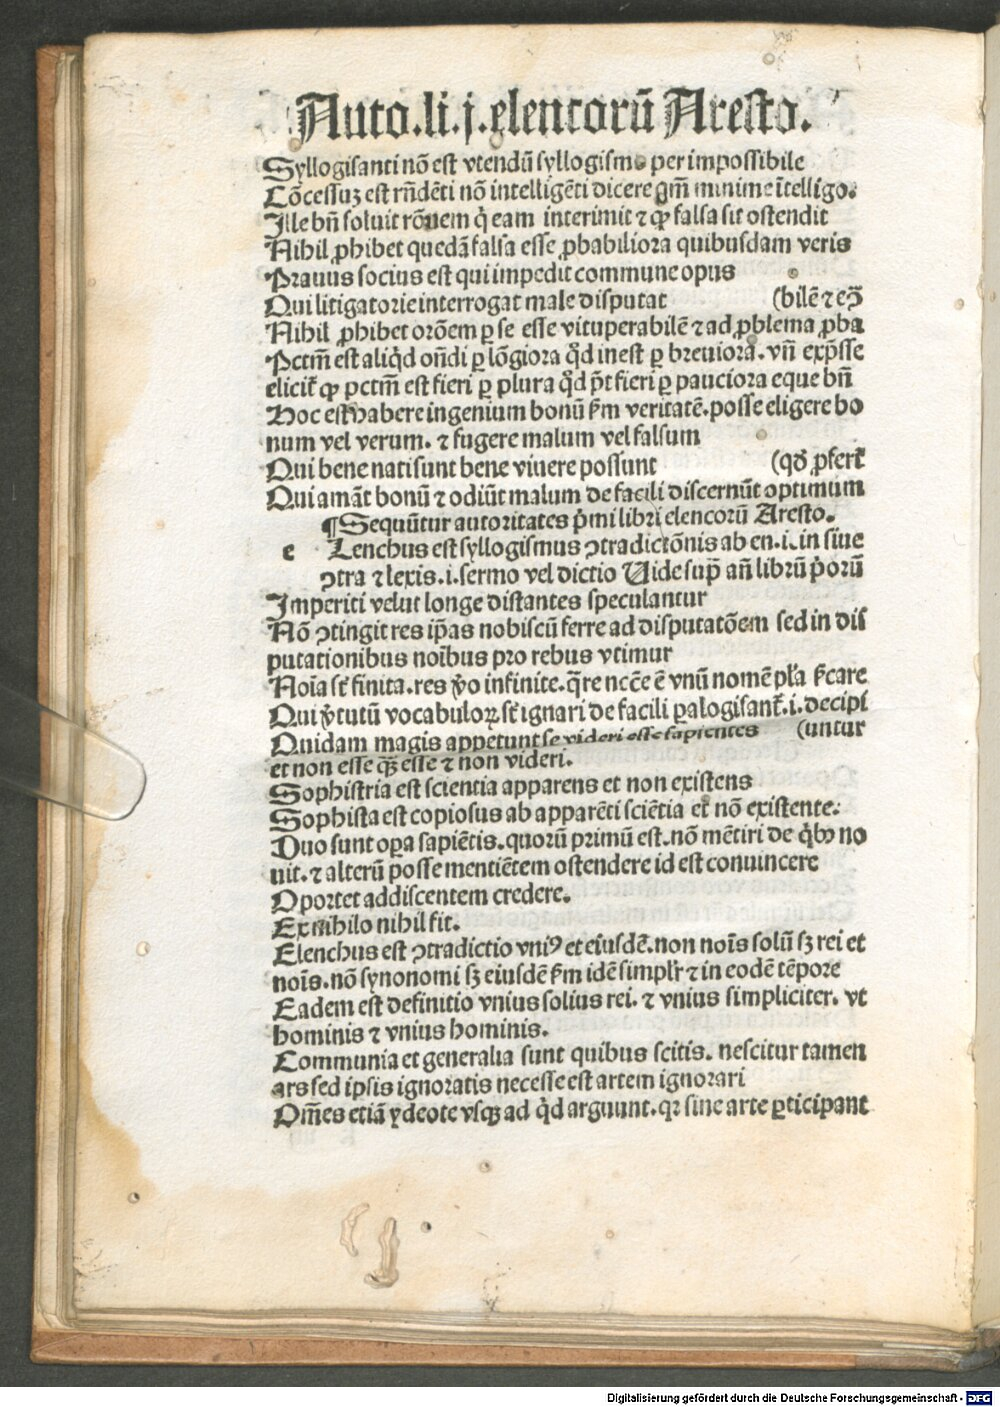 Auto.li.j.elencorū Aresto.
Syllogisanti nō est vtendū syllogismo per impossibile
Cōcessuꝫ est rn̄dēti nō intelligēti dicere qm̄ minime ītelligo.
Ille bn̄ soluit rōnem q̇ eam interimit ⁊ ꝙ falsa sit ostendit
Nihil ꝓhibet quedā falsa esse ꝓbabiliora quibusdam veris
Prauus socius est qui impedit commune opus
Qui litigatorie interrogat male disputat (bilē ⁊ eↄ̄
Nihil ꝓhibet orōem ꝑ se esse vituperabilē ⁊ ad ꝓblema ꝓba
Pctm̄ est aliq̇d on̄di ꝑ lōgiora q̇d inest ꝑ breuiora. vn̄ exp̄sse
elicit̄ ꝙ pctm̄ est fieri ꝑ plura q̇d p̄t fieri ꝑ pauciora eque bn̄
Hoc est habere ingenium bonū ẜm veritatē. posse eligere bo
num vel verum. ⁊ fugere malum vel falsum
Qui bene nati sunt bene viuere possunt (qđ ꝓfert̄
Qui amāt bonū ⁊ odiūt malum de facili discernūt optimum
¶ Sequūtur autoritates p̄mi libri elencorū Aresto.
e Lenchus est syllogismus ꝯtradictōnis ab en. i. in siue
ꝯtra ⁊ lexis. i. sermo vel dictio Uide sup̄ an̄ librū p̄orū
Imperiti velut longe distantes speculantur
Nō ꝯtingit res ip̄as nobiscū ferre ad disputatōem sed in dis
putationibus noībus pro rebus vtimur
Noīa st̄ finita. res v̊o infinite. q̄re nccē ē vnū nomē pl̄a ẜcare
Qui v̊tutū vocabuloꝝ st̄ ignari de facili ꝑalogisant̄. i. decipi
Quidam magis appetunt se videri esse sapientes (untur
et non esse qꝫ̄ esse ⁊ non videri.
Sophistria est scientia apparens et non existens
Sophista est copiosus ab apparēti sciētia et nō existente.
Duo sunt oꝑa sapiētis. quorū primū est. nō mētiri de q̇bꝰ no
uit. ⁊ alterū posse mentiētem ostendere id est conuincere
Oportet addiscentem credere.
Ex nihilo nihil fit.
Elenchus est ꝯtradictio vniꝰ et eiusdē. non noīs solū sꝫ rei et
noīs. nō synonomi sꝫ eiusdē ẜm idē simplr̄ ⁊ in eodē tēpore
Eadem est definitio vnius solius rei. ⁊ vnius simpliciter. vt
hominis ⁊ vnius hominis.
Communia et generalia sunt quibus scitis. nescitur tamen
ars sed ipsis ignoratis necesse est artem ignorari
Om̄es etiā ydeote vsqꝫ ad q̇d arguunt. qꝛ sine arte ꝑticipant
Digitalisierung gefördert durch die Deutsche Forschungsgemeinschaft - DFG